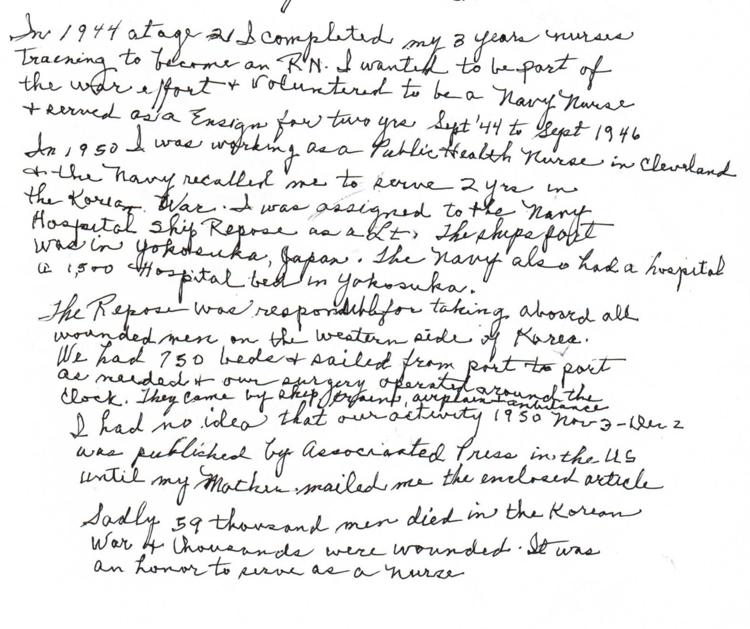 In 1944 at age 21 I completed my 3 years nurses
training to become an RN. I wanted to be part of
the war effort + voluntered to be a Navy Nurse
+ served as a Ensign for two yrs Sept '44 to Sept 1946
In 1950 I was working as a Public Health Nurse in Cleveland
+ the Navy recalled me to serve 2 yrs in
the Korean War. I was assigned to the Navy
Hospital Ship Repose as a Lt. The ships port
was in Yokosuka, Japan. The Navy also had a hospital
a 1,500 Hospital bed in Yokosuka.
The Repose was responsible for taking aboard all
wounded men on the western side of Korea.
We had 750 beds + sailed from port to port
as needed + our surgery operated around the
clock. They came by ship, trains, airplain + ambulance
I had no idea that our activity 1950 Nov 3 - Dec 2
was published by Associanted Press in the US
until my Mother mailed me the enclosed article
Sadly 59 thousand men died in the Korean
War + thousands were wounded. It was
an honor to serve as a nurse